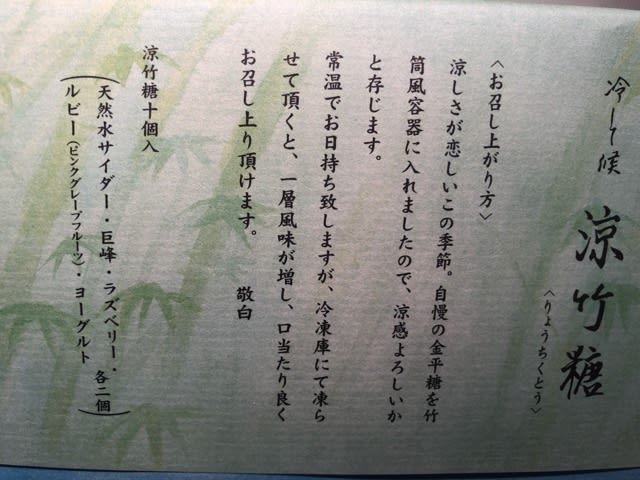 冷して候
涼竹糖
〈りょうちくとう〉
〈お召し上がり方〉
涼しさが恋しいこの季節。自慢の金平糖を竹
筒風容器に入れましたので、涼感よろしいか
と存じます。
常温でお日持ち致しますが、冷凍庫にて凍ら
せて頂くと、一層風味が増し、口当たり良く
お召し上り頂けます。
敬白
涼竹糖十個入
(天然水サイダー・巨峰・ラズベリー・
ルビー(ピンクグレープフルーツ)・ヨーグルト
各二個)